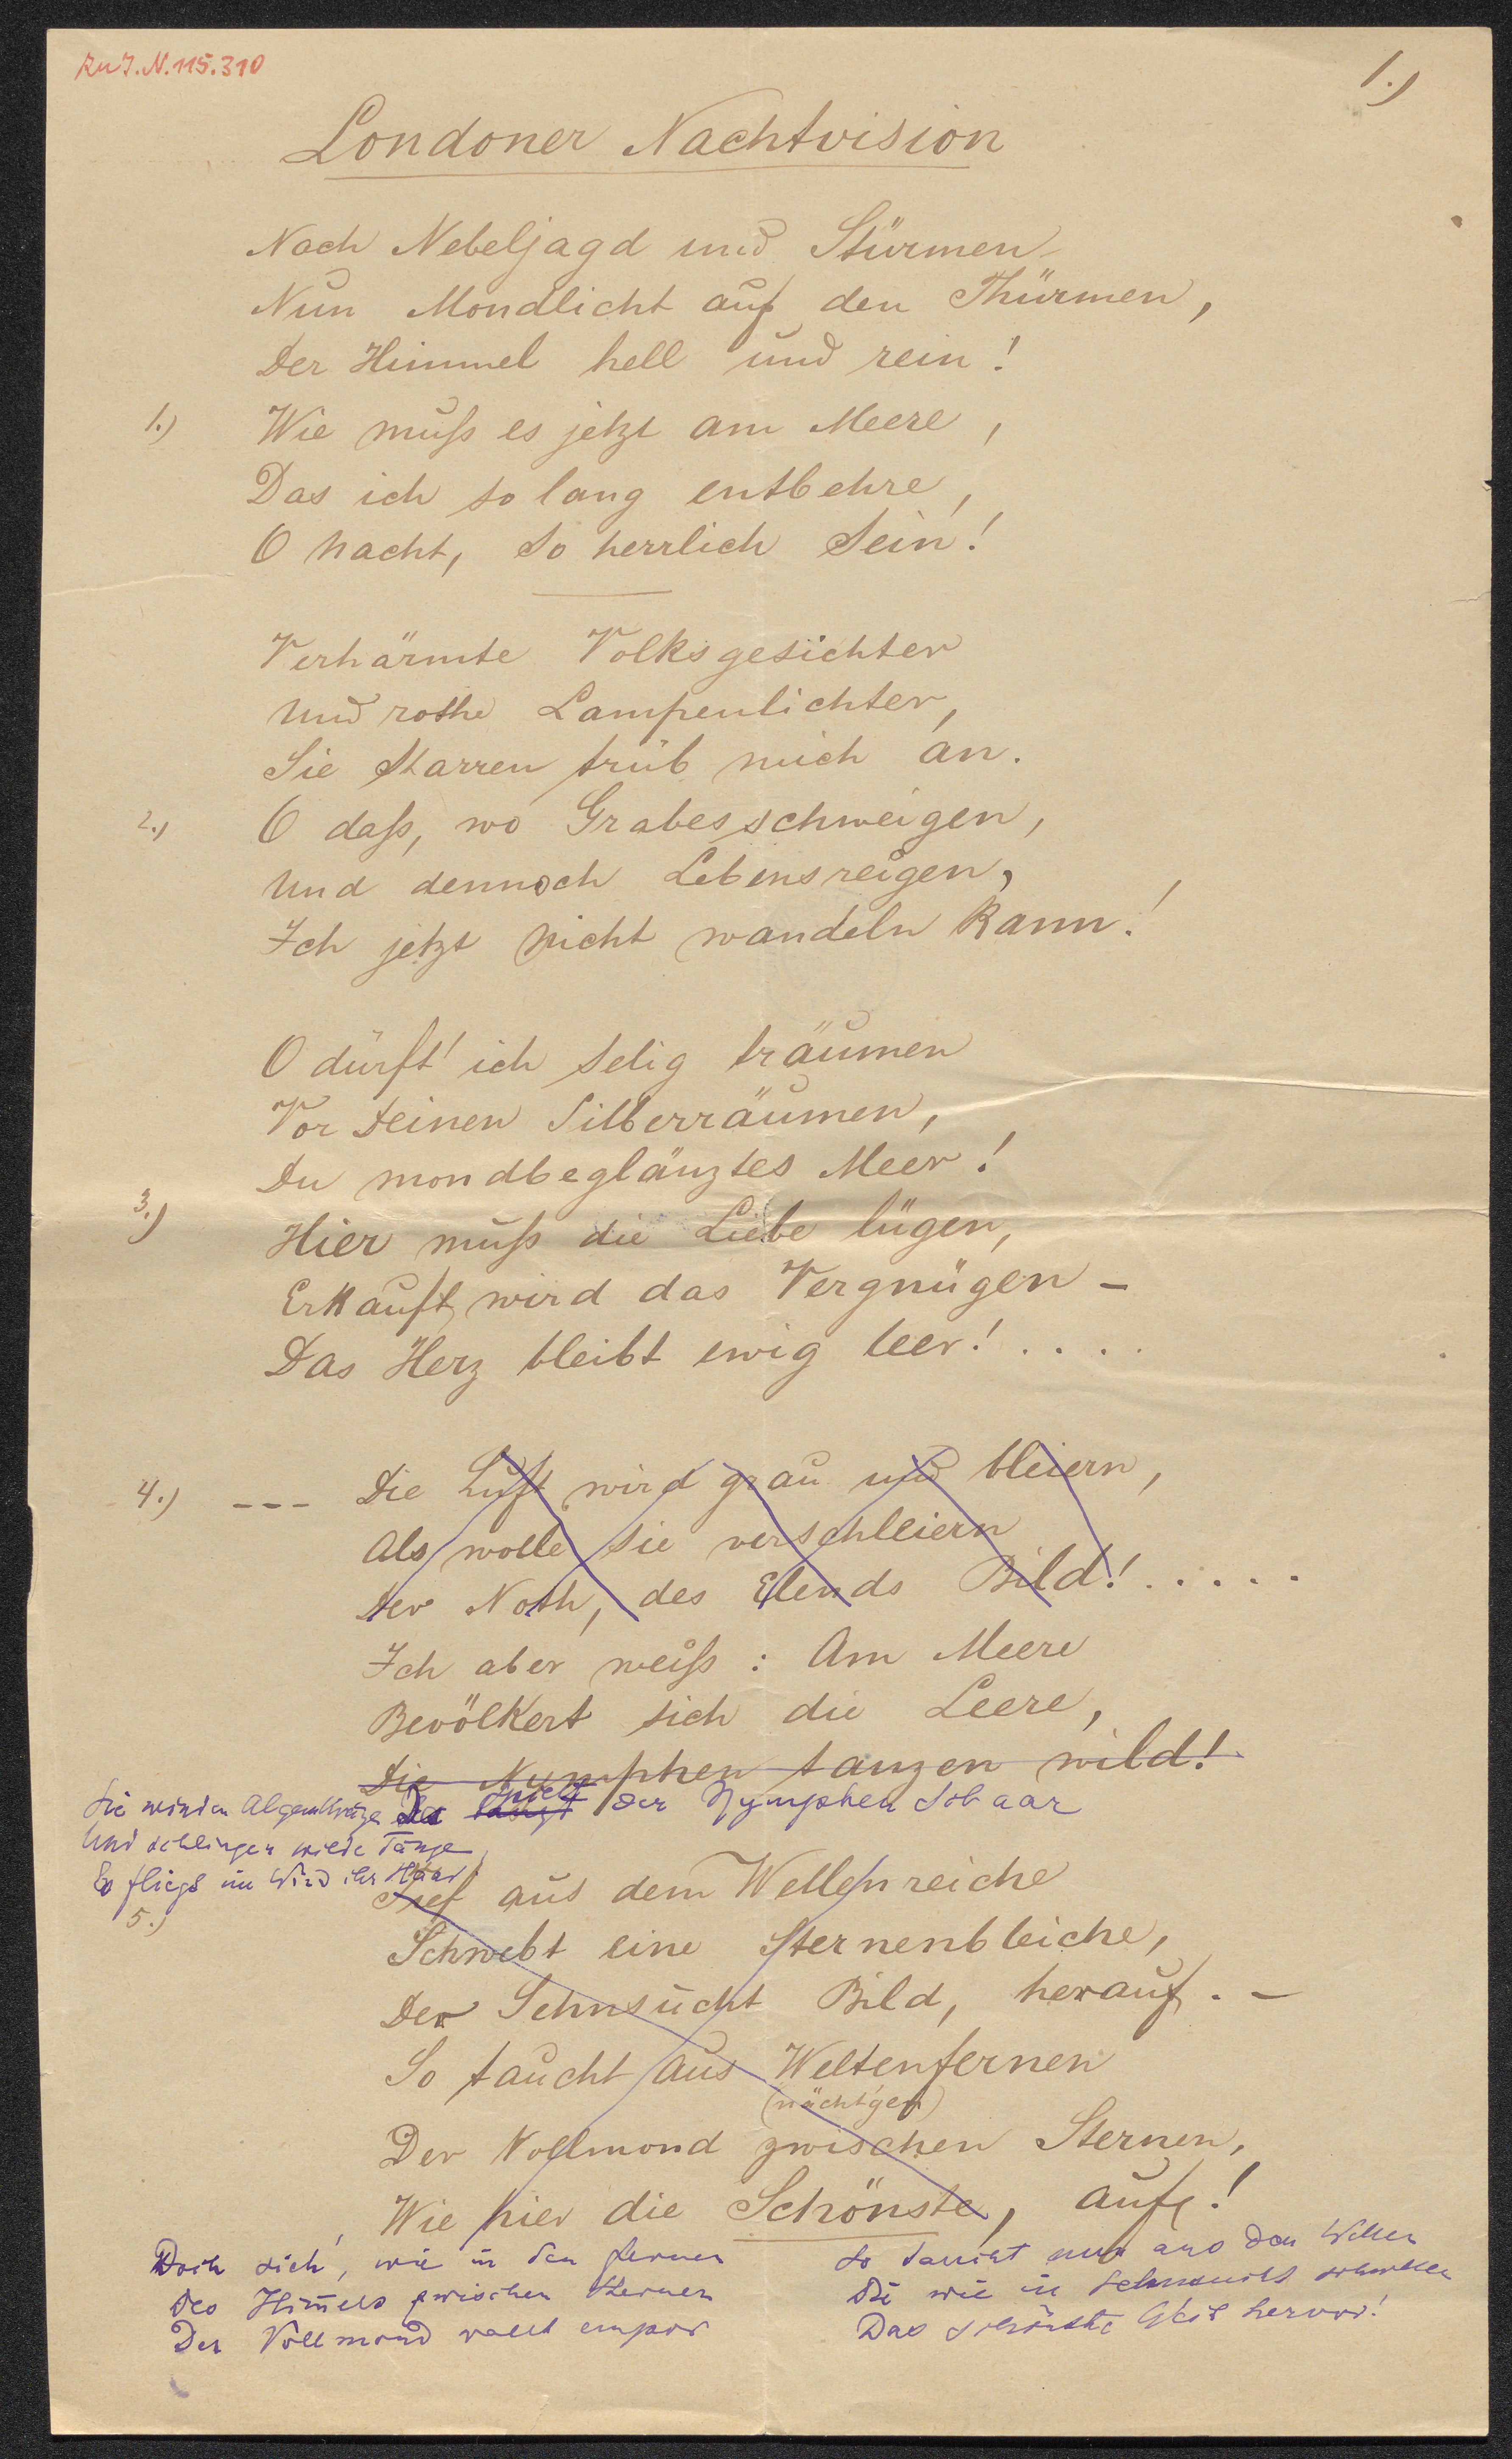 Zu J.N. 115.310
1.)
Londoner Nachtvision
Nach Nebeljagd und Stürmen
Nun Mondlicht auf den Thürmen,
Der Himmel hell und rein!
1.) Wie muß es jetzt am Meere,
Das ich so lang entbehre,
O Nacht, so herrlich sein!
Verhärmte Volksgesichter
Und rothe Lampenlichter,
Sie starren trüb mich an.
2.) O daß, wo Grabesschweigen,
Und dennoch Lebensreigen,
Ich jetzt nicht wandeln kann!
O dürft' ich selig träumen
Vor Deinen Silberräumen,
Du mondbeglänztes Meer!
3.) Hier muß die Liebe lügen,
Erkauft wird das Vergnügen –
Das Herz bleibt ewig leer! . . . .
4.) --- Die Luft wird grau und bleiern,
Als wolle sie verschleiern
Der Noth, des Elends Bild! . . . . .
Ich aber weiß: Am Meere
Bevölkert sich die Leere,
Die Nymphen tanzen wild!
der Nymphen Schaar
Sie winden Algenkränze
Und schlingen wilde Tänze,
Es fliegt im Wind ihr Haar
5.)
Tief aus dem Wellenreiche
Schwebt eine Sternenbleiche,
Der Sehnsucht Bild, herauf. –
So taucht aus Weltenfernen
(nächt'gen)
Der Vollmond zwischen Sternen,
Wie hier die Schönste, auf!
Doch sieh', wie in den Fernen
Des Himmels zwischen Sternen
Der Vollmond wallt empor
So taucht nun aus den Wellen
Die wie in Sehnsucht schwellen
Das schönste Weib hervor!